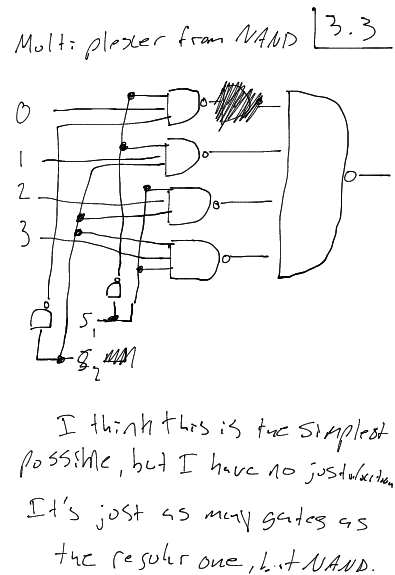 Multiplexer from NAND 3.3
0
1
2
3
S1
S2
I think this is the simplest
possible, but I have no justification
It's just as many gates as
the regular one, but NAND.